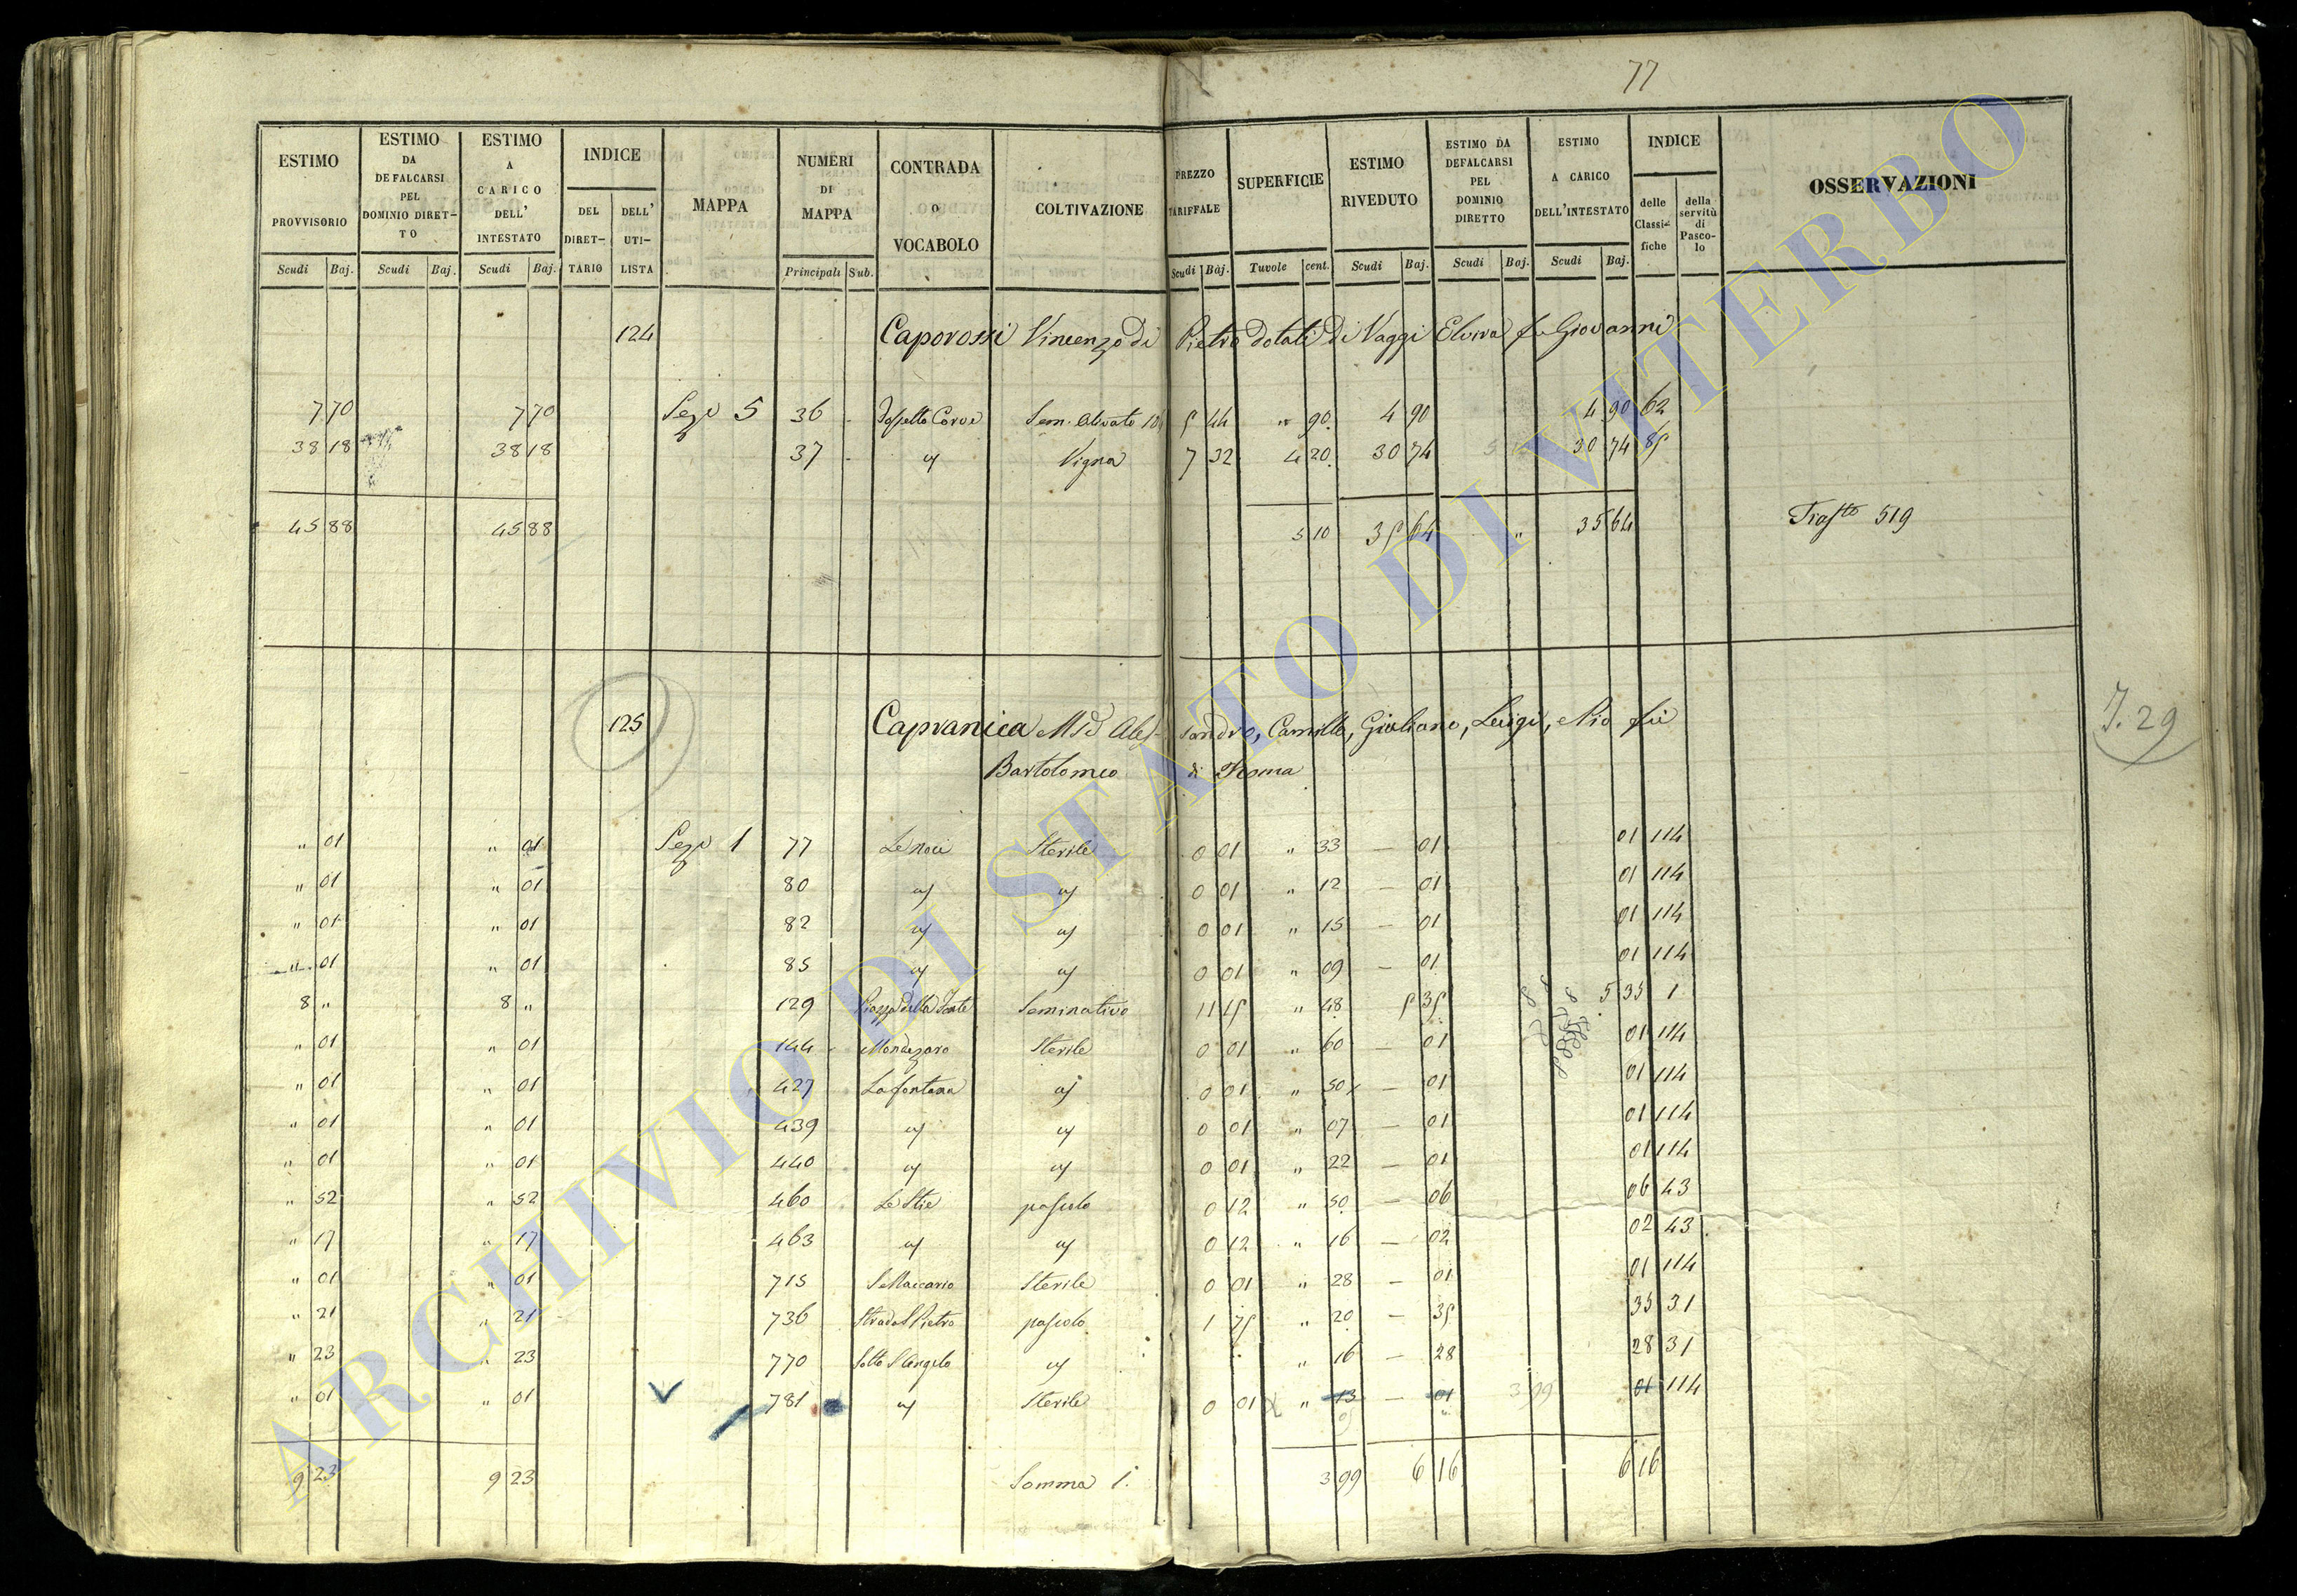 77
ESTIMO PROVVISORIO Scudi Baj.
ESTIMO DA DEFALCARSI PEL DOMINIO DIRET-TO Scudi Baj.
ESTIMO A CARICO DELL' INTESTATO Scudi Baj.
INDICE DEL DIRET-TARIO DELL' UTI-LISTA
MAPPA
NUMERI DI MAPPA Principali Sub.
CONTRADA O VOCABOLO
COLTIVAZIONE
PREZZO TARIFFALE Scudi Baj.
SUPERFICIE Tavole cent.
ESTIMO RIVEDUTO Scudi Baj.
ESTIMO DA DEFALCARSI PEL DOMINIO DIRETTO Scudi Baj.
ESTIMO A CARICO DELL'INTESTATO Scudi Baj.
INDICE delle Classi-fiche della servitù di Pasco-lo
OSSERVAZIONI
124 Caporossi Vincenzo di Pietro dotati di Vaggi Elvira fu Giovanni
7 70 7 70 Sezе 5 36 Sem. Olivato 5 44 " 90 4 90 4 90 62
38 18 38 18 37 - aj Vigna 7 32 4 20 30 74 30 74 85
45 88 45 88 5 10 35 64 " 35 64 Trasto 519
125 Capranica Mse Ales-sandro, Camillo, Giuliano, Luigi, e Pio fu
Bartolomeo di Roma
J. 29
" 01 " 01 Seze 1 77 Le noci Sterile 0 01 " 33 — 01 01 114
" 01 " 01 80 aj aj 0 01 " 12 — 01 01 114
" 01 " 01 82 aj aj 0 01 " 15 — 01 01 114
" 01 " 01 85 aj aj 0 01 " 09 — 01 01 114
8 " 8 " 129 Piazza della Fonte Seminativo 11 15 " 48 5 35 5 35 1
" 01 " 01 144 Mondezaro Sterile 0 01 " 60 — 01 01 114
" 01 " 01 427 La fontana aj 0 01 " 50 — 01 01 114
" 01 " 01 439 aj aj 0 01 " 07 — 01 01 114
" 01 " 01 440 aj aj 0 01 " 22 — 01 01 114
" 52 " 52 460 Le Stie pascolo 0 12 " 50 — 06 06 43
" 17 " 17 463 aj aj 0 12 " 16 — 02 02 43
" 01 " 01 715 S Maccario Sterile 0 01 " 28 — 01 01 114
" 21 " 21 736 Strada S Pietro pascolo 1 75 " 20 — 35 35 31
" 23 " 23 770 Sotto S Angelo aj " 16 — 28 28 31
" 01 " 01 781 aj Sterile 0 01 " 13 — 01 3 99 01 114
9 23 9 23 Somma 1. 3 99 6 16 6 16
ARCHIVIO DI STATO DI VITERBO